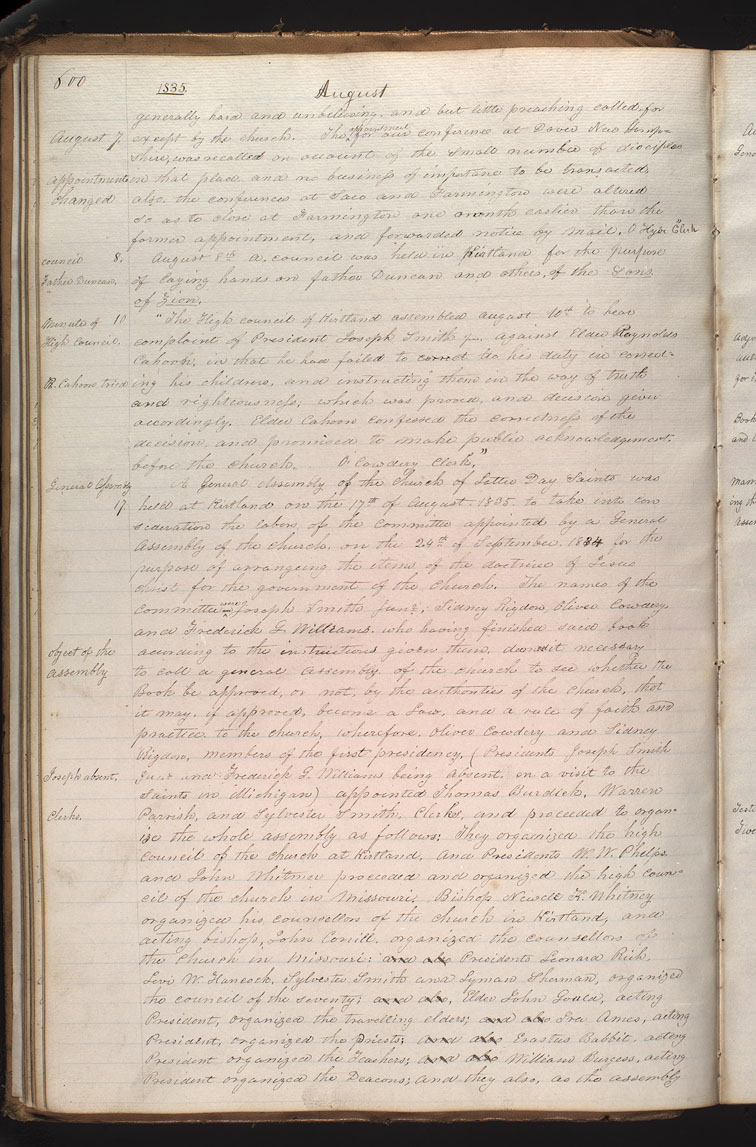 600 1835. August
generally hard and unbelieving, and but little preaching called for
August 7 except by the church. The appointment for our conference at Dover New Hamp-
shire, was recalled on account of the small number of disciples
appointments in that place and no business of importance to be transacted,
changed also the conferences at Saco and Farmington were altered
so as to close at Farmington one month earlier than the
former appointment, and forwarded notice by mail. O. Hyde Clerk"
council 8. August 8th A council was held in Kirtland for the purpose
Father Duncan. of laying hands on father Duncan and others, of the Sons
of Zion.
Minute of 10 "The High council of Kirtland assembled august 10th to hear
High Council. complaint of President Joseph Smith jr. against Elder Reynolds
Cahoon, in that he had failed to correct do his duty in correct-
R. Cahoon tried ing his children, and instructing them in the way of truth
and righteousness; which was proved, and decision given
accordingly. Elder Cahoon confessed the correctness of the
decision, and promised to make public acknowledgement,
before the church. O. Cowdery Clerk."
General Assembly A General Assembly of the Church of Latter Day Saints was
17. held at Kirtland on the 17th of August 1835. to take into con
sideration the labors of the committee appointed by a General
Assembly of the church, on the 24th of September, 1834 for the
purpose of arrangeing the items of the doctrine of Jesus
christ for the government of the church. The names of the
committee were Joseph Smith Junr., Sidney Rigdon, Oliver Cowdery,
and Frederick G. Williams. who having finished said book
object of the according to the instructions given them, deem it necessary
assembly to call a general assembly of the church to see whether the
Book be approved, or not, by the authorities of the church, that
it may, if approved, become a Law, and a rule of faith and
practice to the church, wherefore, Oliver Cowdery and Sidney
Rigdon, members of the first presidency, (Presidents Joseph Smith
Joseph absent. Junr and Frederick G. Williams being absent, on a visit to the
Saints in Michigan) appointed Thomas Burdick, Warren
Clerks. Parrish, and Sylvester Smith, Clerks, and proceeded to organ-
ize the whole assembly as follows; They organized the high
council of the church at Kirtland, and Presidents W. W. Phelps
and John Whitmer proceeded and organized the high coun-
cil of the church in Missouri; Bishop Newell K. Whitney
organized his counsellors of the church in Kirtland, and
acting bishop, John Corrill, organized the counsellors of
the church in Missouri: and also Presidents Leonard Rich,
Levi W. Hancock, Sylvester Smith and Lyman Sherman, organized
the council of the seventy; and also, Elder John Gould, acting
President, organized the travelling elders; and also Ira Ames, acting
President, organized the priests; and also Erastus Babbit, acting
President organized the Teachers; and also William Burgess, acting
President organized the Deacons; and they also, as the assembly